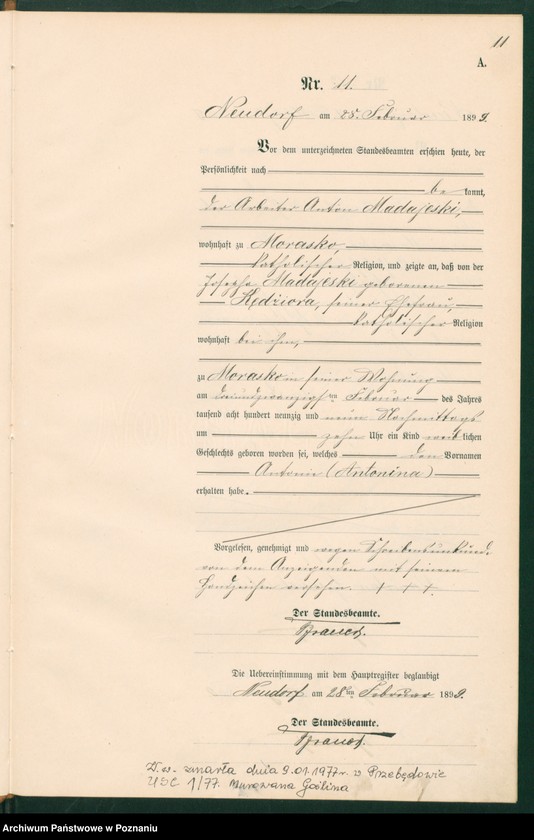 11
A.
Nr. 11.
Neudorf am 25. Februar 1899.
Vor dem unterzeichneten Standesbeamten erschien heute, der
Persönlichkeit nach
be kannt,
der Arbeiter Anton Madajeski,
wohnhaft zu Morasko,
katholischer Religion, und zeigte an, daß von der
Josepha Madajeski geborenen
Kędziora, seiner Ehefrau,
katholischer Religion
wohnhaft bei ihm,
zu Morasko in seiner Wohnung
am dreiundzwanzigsten Februar des Jahres
tausend acht hundert neunzig und neun Nachmittags
um zehn Uhr ein Kind weib lichen
Geschlechts geboren worden sei, welches den Vornamen
Antonie (Antonina)
erhalten habe.
Vorgelesen, genehmigt und wegen Schreibensunkunde
von dem Anzeigenden mit seinem
Handzeichen versehen. + + +.
Der Standesbeamte.
Die Uebereinstimmung mit dem Hauptregister beglaubigt
Neudorf am 28ten Februar 1899.
Der Standesbeamte.
W. w. zmarła dnia 9.01.1977 r. w Przebędowie
USC 1/77 Murowana Goślina
Archiwum Państwowe w Poznaniu